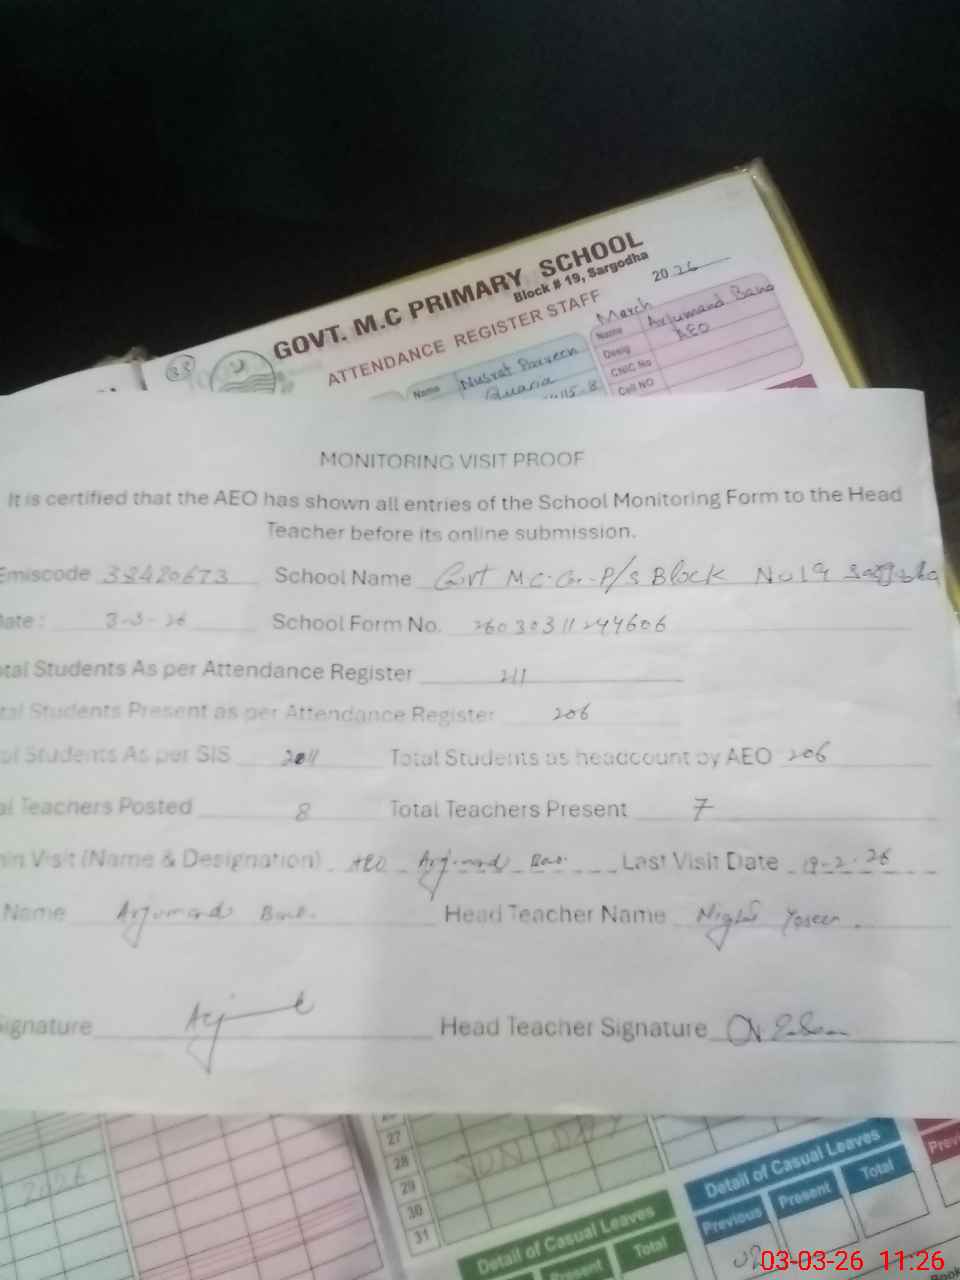 GOVT. M.C PRIMARY SCHOOL
Block # 19, Sargodha
ATTENDANCE REGISTER STAFF
March 2026
33
Name Nusrat Parveen
Name Arjumand Bano
Desig AEO
CNIC No
Cell NO
MONITORING VISIT PROOF
It is certified that the AEO has shown all entries of the School Monitoring Form to the Head
Teacher before its online submission.
Emiscode 38420673 School Name Govt M.C. P/S Block No 19 Sargodha
ate: 3-3-26 School Form No. 26030311244606
tal Students As per Attendance Register 211
tal Students Present as per Attendance Register 206
al Students As per SIS 211 Total Students as headcount by AEO 206
al Teachers Posted 8 Total Teachers Present 7
in Visit (Name & Designation) AEO Arjumand Bano Last Visit Date 19-2-26
Name Arjumand Bano Head Teacher Name Yaseen
ignature Head Teacher Signature
27
28 SUN DAY
29
30
31
Detail of Casual Leaves
Present Total
Detail of Casual Leaves
Previous Present Total
03-03-26 11:26